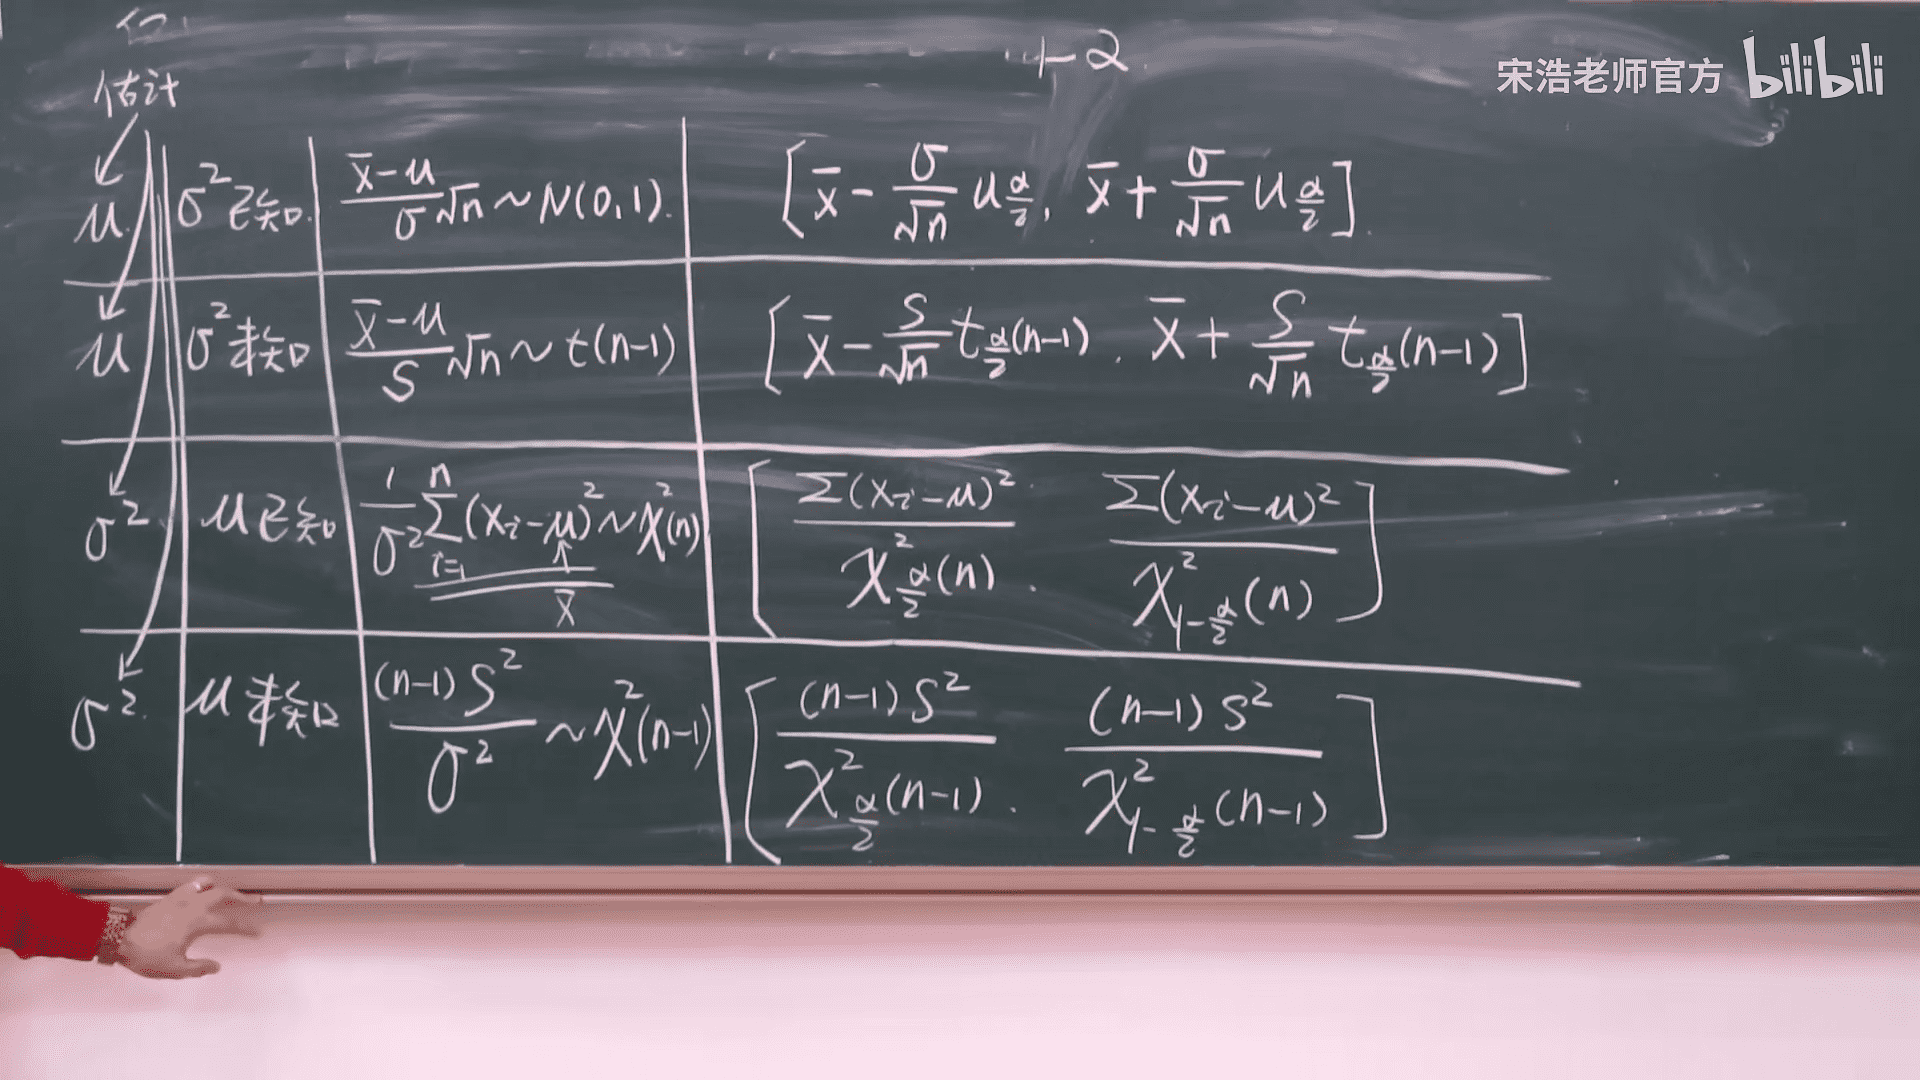 1-α
宋浩老师官方 bilibili
估计
μ σ²已知 (x̄-μ)/σ √n ~ N(0,1). [x̄ - σ/√n u_{α/2}, x̄ + σ/√n u_{α/2}]
μ σ²未知 (x̄-μ)/S √n ~ t(n-1) [x̄ - S/√n t_{α/2}(n-1), x̄ + S/√n t_{α/2}(n-1)]
σ² μ已知 1/σ² Σ_{i=1}^{n} (x_i-μ)² ~ χ²(n) [Σ(x_i-μ)² / χ²_{α/2}(n), Σ(x_i-μ)² / χ²_{1-α/2}(n)]
x̄
σ² μ未知 (n-1)S²/σ² ~ χ²(n-1) [(n-1)S² / χ²_{α/2}(n-1), (n-1)S² / χ²_{1-α/2}(n-1)]